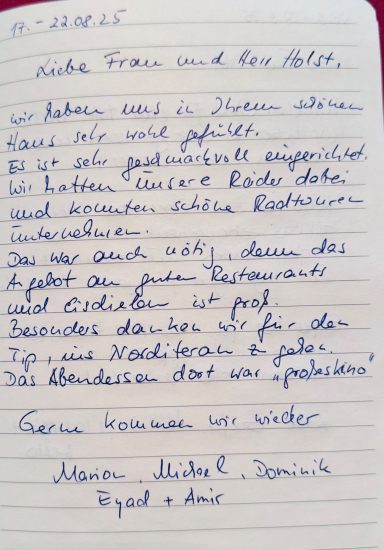 17. - 22.08.25
Liebe Frau und Herr Holst,
wir haben uns in Ihrem schönen
Haus sehr wohl gefühlt.
Es ist sehr geschmackvoll eingerichtet.
Wir hatten unsere Räder dabei
und konnten schöne Radtouren
unternehmen.
Das war auch nötig, denn das
Angebot an guten Restaurants
und Eisdielen ist groß.
Besonders danken wir für den
Tip, ins Norditeran zu gehen.
Das Abendessen dort war „großes kino"
Gerne kommen wir wieder
Marion, Michael, Dominik
Eyad + Amir